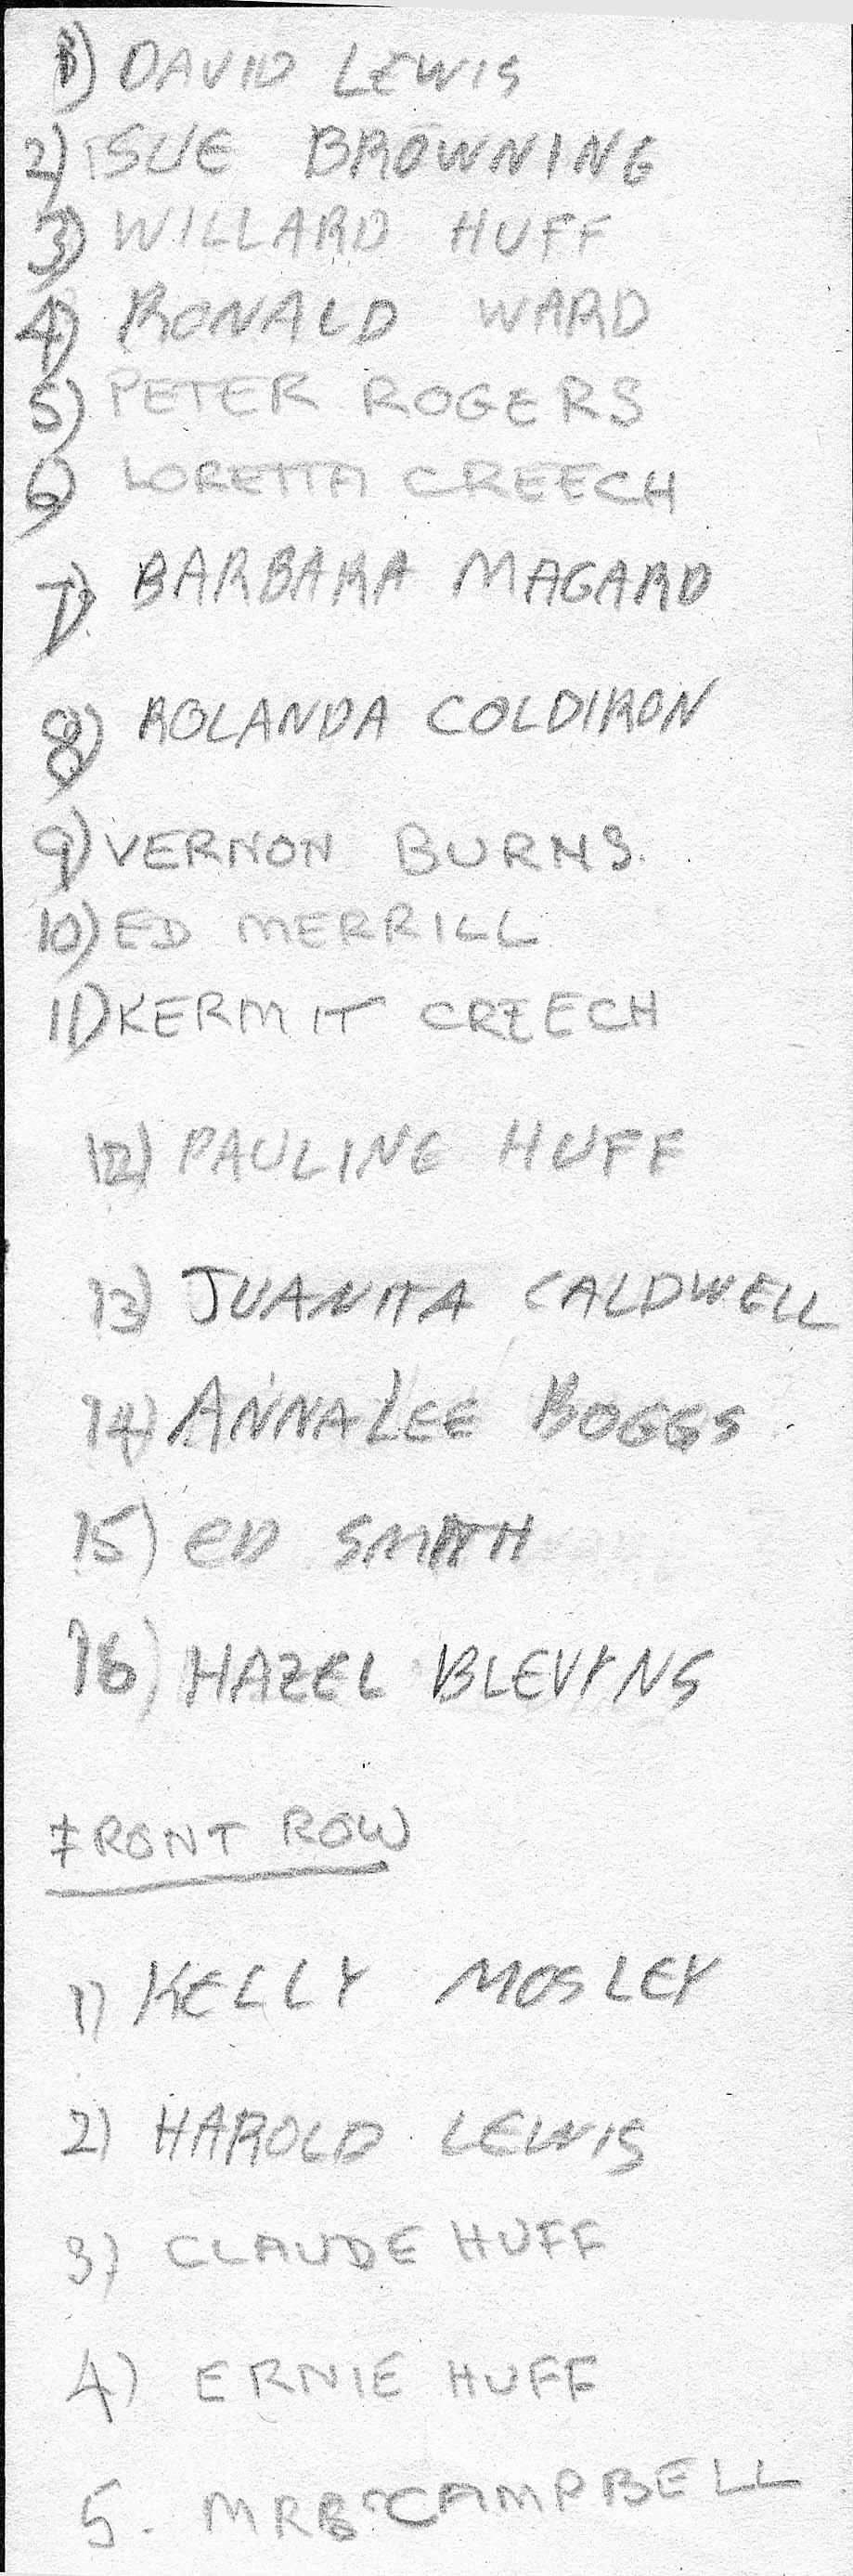 1) DAVID LEWIS
2) SUE BROWNING
3) WILLARD HUFF
4) RONALD WARD
5) PETER ROGERS
6) LORETTA CREECH
7) BARBARA MAGARD
8) ROLANDA COLDIRON
9) VERNON BURNS.
10) ED MERRILL
11) KERMIT CREECH
12) PAULINE HUFF
13) JUANITA CALDWELL
14) ANNALEE BOGGS
15) eD SMITH
16) HAZEL BLEVYNS
FRONT ROW
1) KELLY MOSLEY
2) HAROLD LEWIS
3) CLAUDE HUFF
4) ERNIE HUFF
5. CAMPBELL